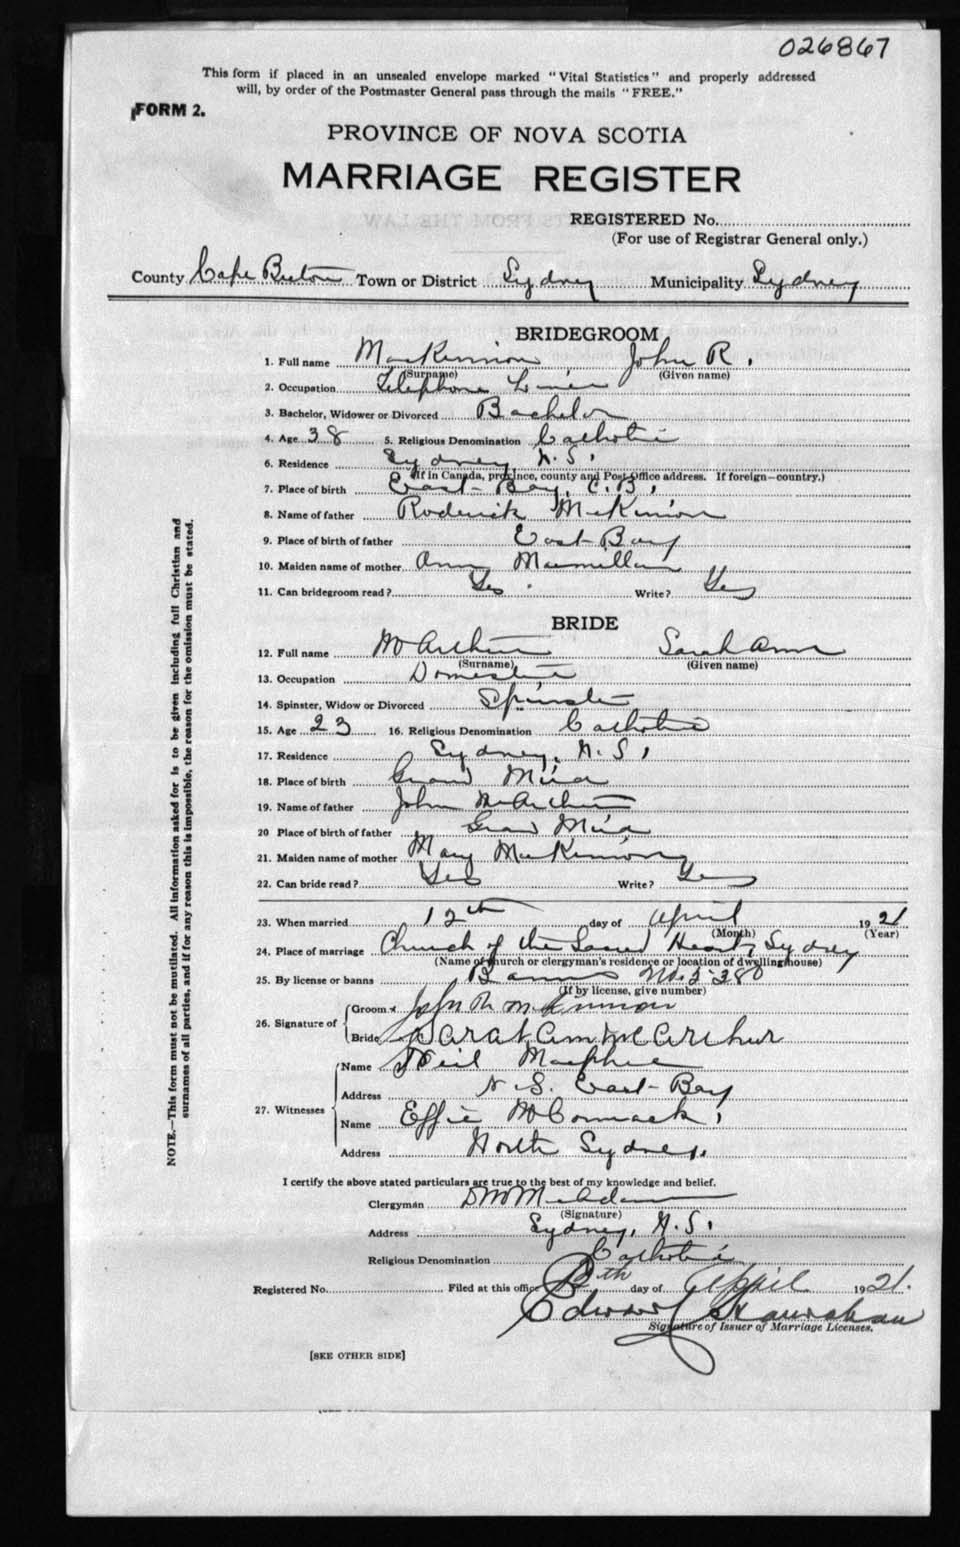 026867
This form if placed in an unsealed envelope marked "Vital Statistics" and properly addressed
will, by order of the Postmaster General pass through the mails "FREE."
FORM 2.
PROVINCE OF NOVA SCOTIA
MARRIAGE REGISTER
REGISTERED No.
(For use of Registrar General only.)
County Cape Breton Town or District Sydney Municipality Sydney
BRIDEGROOM
1. Full name MacKinnon John R.
(Surname) (Given name)
2. Occupation Telephone
3. Bachelor, Widower or Divorced Bachelor
4. Age 38 5. Religious Denomination Catholic
6. Residence Sydney N.S.
(If in Canada, province, county and Post Office address. If foreign—country.)
7. Place of birth East Bay, C.B.
8. Name of father Roderick McKinnon
9. Place of birth of father East Bay
10. Maiden name of mother Ann Macmillan
11. Can bridegroom read? Yes Write? Yes
BRIDE
12. Full name McArthur Sarah Ann
(Surname) (Given name)
13. Occupation Domestic
14. Spinster, Widow or Divorced Spinster
15. Age 23 16. Religious Denomination Catholic
17. Residence Sydney, N.S.
18. Place of birth Grand Mira
19. Name of father John McArthur
20 Place of birth of father Grand Mira
21. Maiden name of mother Mary MacKinnon
22. Can bride read? Yes Write? Yes
23. When married 12th day of April 1921
(Month) (Year)
24. Place of marriage Church of the Sacred Heart, Sydney
(Name of church or clergyman's residence or location of dwelling house)
25. By license or banns Banns No 5380
(If by license, give number)
26. Signature of
Groom John R McKinnon
Bride Sarah Ann McArthur
27. Witnesses
Name Neil Macphee
Address N.S. East Bay
Name Effie McCormack
Address North Sydney.
I certify the above stated particulars are true to the best of my knowledge and belief.
Clergyman
(Signature)
Address Sydney, N.S.
Religious Denomination Catholic
Registered No. Filed at this office day of April 1921.
Edward
Signature of Issuer of Marriage Licenses.
[SEE OTHER SIDE]
NOTE.—This form must not be mutilated. All information asked for is to be given including full Christian and
surnames of all parties, and if for any reason this is impossible, the reason for the omission must be stated.